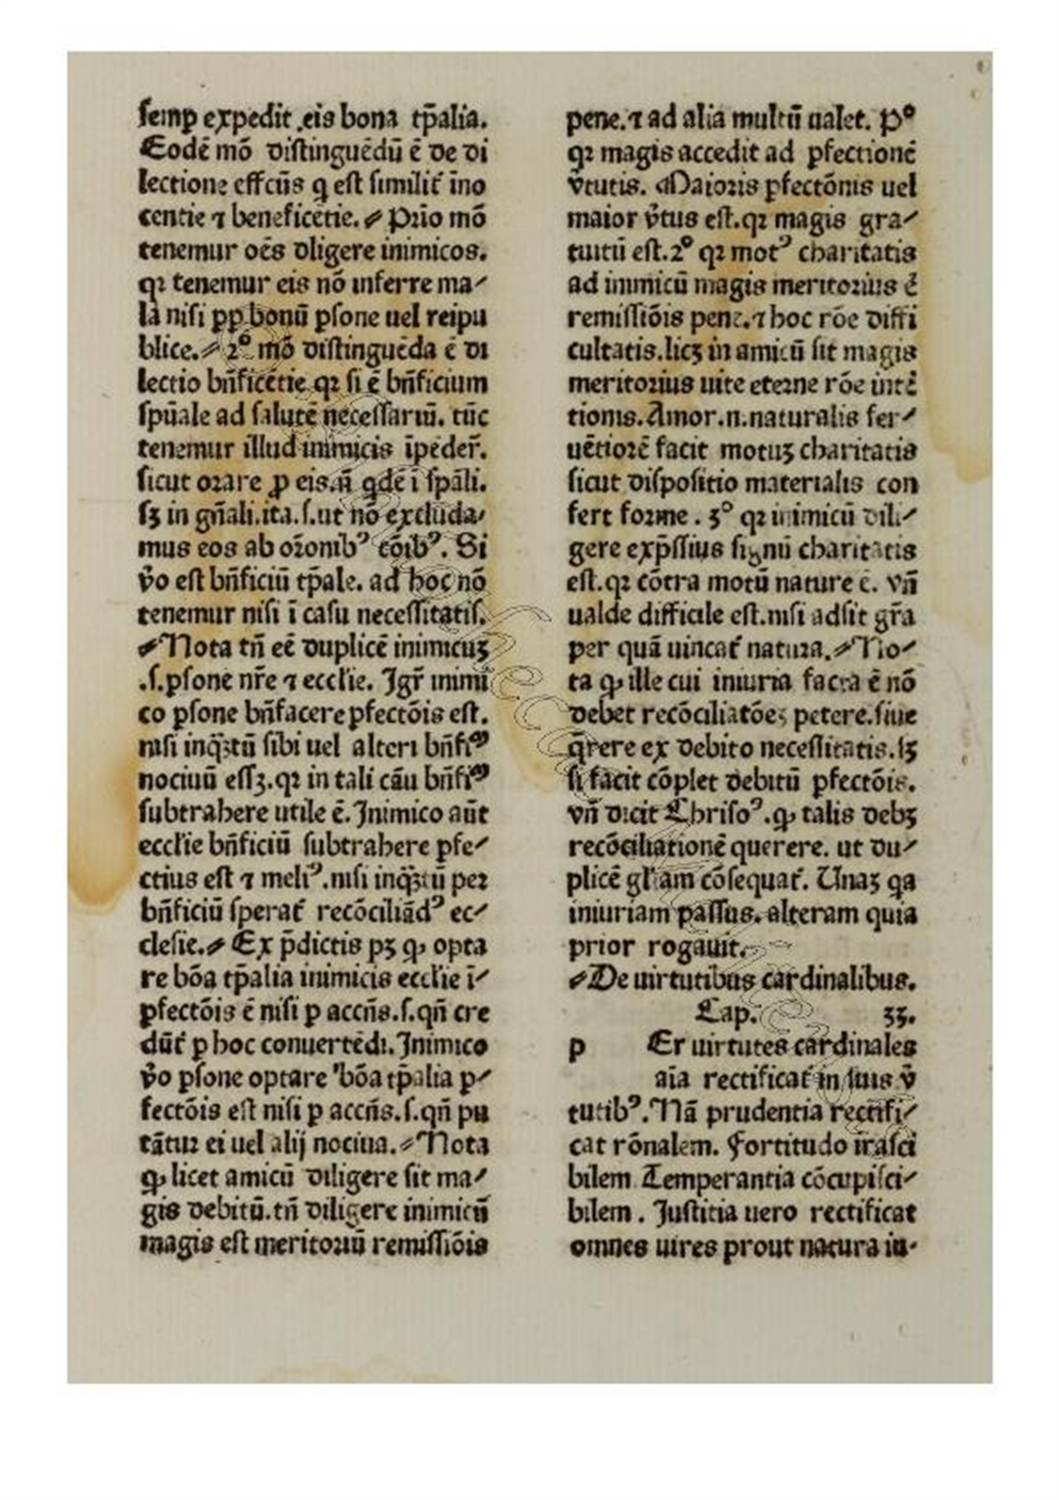 semp expedit eis bona tp̄alia.
Eodē mō distinguēdū ē de di
lectione effcūs q est similit̄ īno
centie ⁊ beneficētie. Prīo mō
tenemur oēs diligere inimicos.
qꝛ tenemur eis nō inferre ma⸗
la nisi pp bonū psone uel reipu
blice. 2° mō distinguēda ē di
lectio bn̄ficētie qꝛ si ē bn̄ficium
spūale ad salutē necessariū. tūc
tenemur illud inimicis īpeder̄.
sicut orare ꝓ eis.
sꝫ in gn̄ali.ita.s.ut nō excluda⸗
mus eos ab or̄onibꝰ cōibꝰ. Si
v̄o est bn̄ficiū tp̄ale. ad hoc nō
tenemur nisi ī casu necessitatis.
Nota tn̄ eē duplicē inimicuꝫ
.s.psone nr̄e ⁊ eccl'ie. Igr̄ inimi
co psone bn̄facere pfectōis est.
nisi inqꝫtū sibi uel alteri bn̄fiᵐ
nociuū essꝫ.qꝛ in tali cāu bn̄fiᵐ
subtrahere utile ē. Inimico aūt
eccl'ie bn̄ficiū subtrahere pfe⸗
ctius est ⁊ meliꝰ.nisi inqꝫtū per
bn̄ficiū sperat̄ recōciliādꝰ ec⸗
clesie. Ex p̄dictis pꝫ ꝙ opta
re bōa tp̄alia inimicis eccl'ie ī⸗
pfectōis ē nisi p accn̄s.s.qn̄ cre
dūt̄ p hoc conuertēdi. Inimico
v̄o psone optare bōa tp̄alia p⸗
fectōis est nisi p accn̄s.s.qn̄ pu
tātur ei uel alij nociua. Nota
ꝙ licet amicū diligere sit ma⸗
gis debitū.tn̄ diligere inimicū
magis est meritoriū remissiōis
pene.⁊ ad alia multū ualet. P°
qꝛ magis accedit ad pfectionē
v̄tutis. Maioris pfectōnis uel
maior v̄tus est.qꝛ magis gra⸗
tuitū est.2° qꝛ motꝰ charitatis
ad inimicū magis meritorius ē
remissiōis pene.⁊ hoc rōe diffi
cultatis.licꝫ in amicū sit magis
meritorius uite eterne rōe intē
tionis.Amor.n.naturalis fer⸗
uētiorē facit motuꝫ charitatis
sicut dispositio materialis con
fert forme. 3° qꝛ inimicū dili⸗
gere exp̄ssius signū charitatis
est.qꝛ cōtra motū nature ē. vn̄
ualde difficile est.nisi adsit gr̄a
per quā uincat̄ natura. No⸗
ta ꝙ ille cui iniuria facta ē nō
debet recōciliatōeꝫ petere.siue
q̄rere ex debito necessitatis.sꝫ
si facit cōplet debitū pfectōis.
vn̄ dicit Chrisoꝰ.ꝙ talis debꝫ
recōciliationē querere. ut du⸗
plicē gl'am cōsequat̄. Unaꝫ qa
iniuriam passus. alteram quia
prior rogauit.
De uirtutibus cardinalibus.
Cap. 33.
p Er uirtutes cardinales
aīa rectificat̄ in suis v̄
tutibꝰ. Nā prudentia rectifi⸗
cat rōnalem. Fortitudo irasci
bilem Temperantia cōcupisci⸗
bilem. Justitia uero rectificat
omnes uires prout natura in⸗